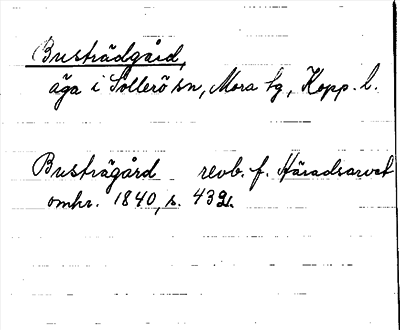 Busträdgård,
äga i Sollerö sn, Mora tg, Kopp. l.
Busträgård revb. f. Häradsarvet
omkr. 1840, s. 432.